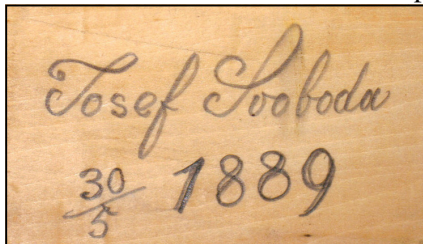 Josef Svoboda
30/5 1889